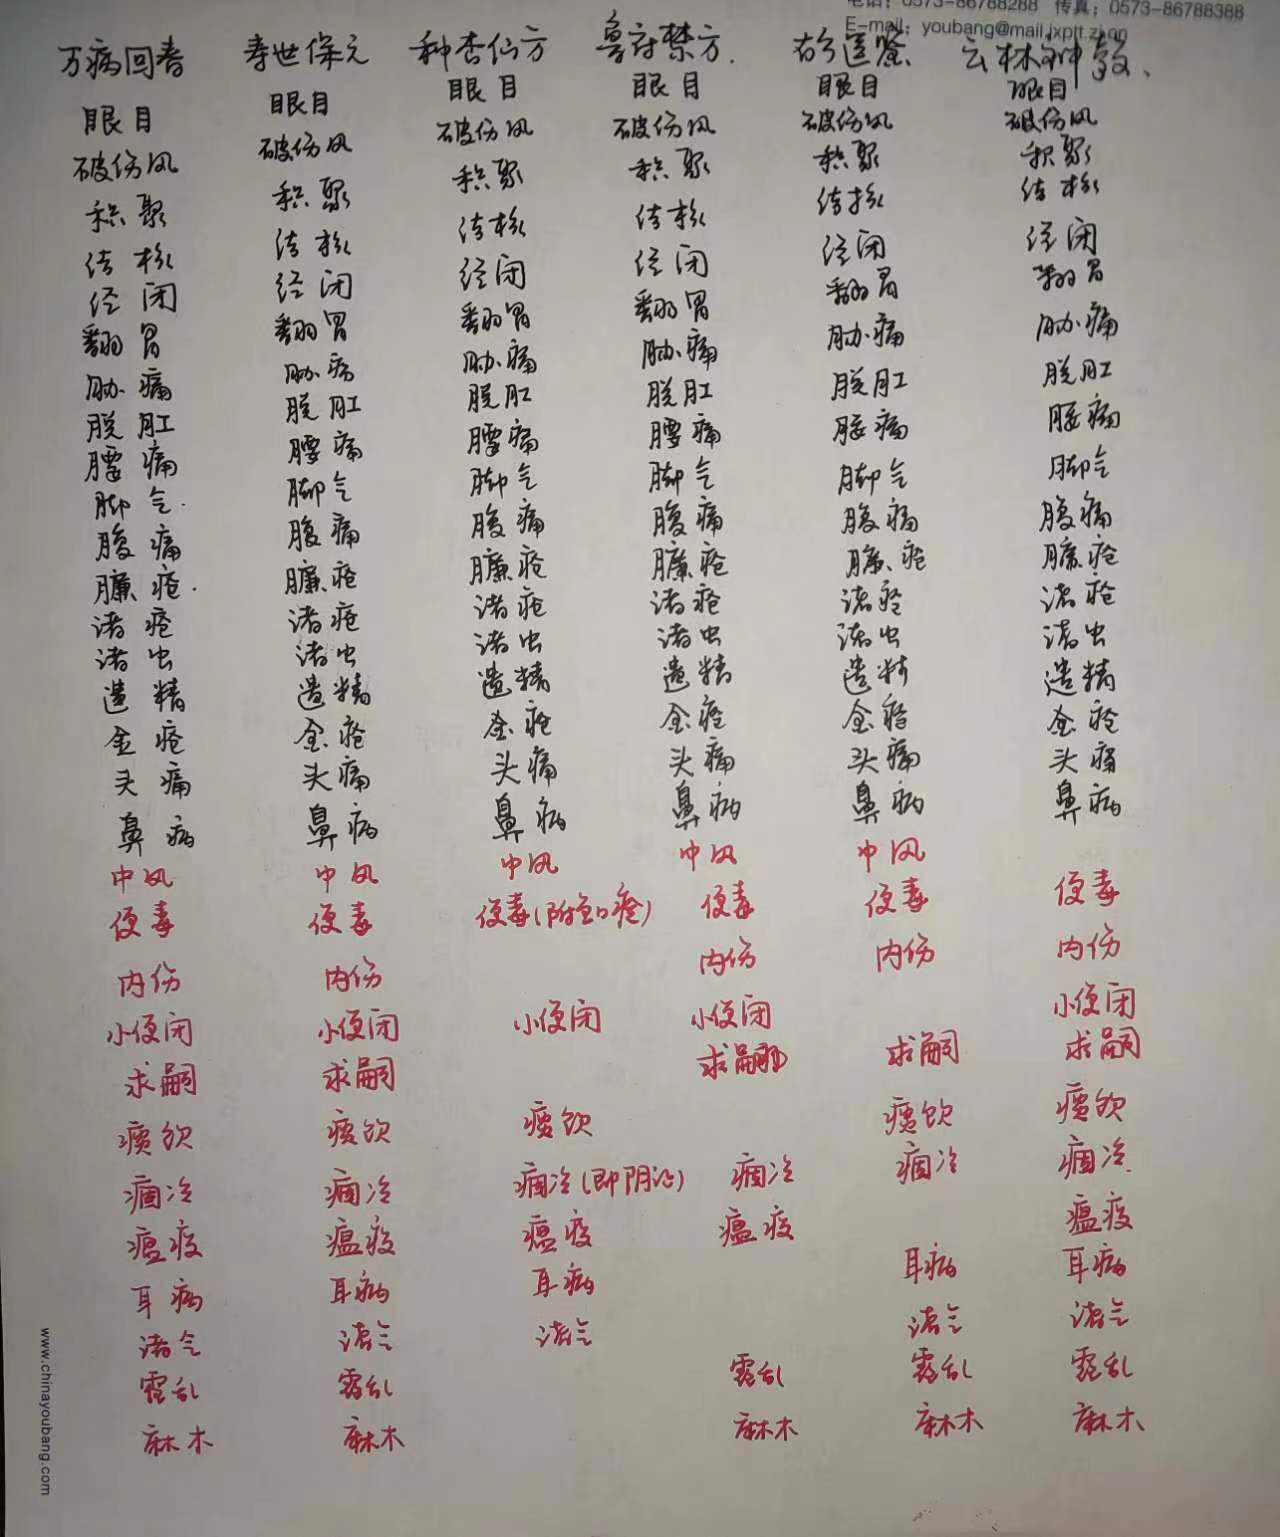 电话：0573-86788288 传真：0573-86788388
E-mail：youbang@mail.jxptt.zj.cn
万病回春 寿世保元 种杏仙方 鲁府禁方. 古今医鉴 云林神彀、
眼目 眼目 眼目 眼目 眼目 眼目
破伤风 破伤风 破伤风 破伤风 破伤风 破伤风
积聚 积聚 积聚 积聚 积聚 积聚
结核 结核 结核 结核 结核 结核
经闭 经闭 经闭 经闭 经闭 经闭
翻胃 翻胃 翻胃 翻胃 翻胃 翻胃
胁痛 胁痛 胁痛 胁痛 胁痛 胁痛
脱肛 脱肛 脱肛 脱肛 脱肛 脱肛
腰痛 腰痛 腰痛 腰痛 腰痛 腰痛
脚气. 脚气 脚气 脚气 脚气 脚气
腹痛 腹痛 腹痛 腹痛 腹痛 腹痛
臁疮. 臁疮 臁疮 臁疮 臁疮 臁疮
诸疮 诸疮 诸疮 诸疮 诸疮 诸疮
诸虫 诸虫 诸虫 诸虫 诸虫 诸虫
遗精 遗精 遗精 遗精 遗精 遗精
金疮 金疮 金疮 金疮 金疮 金疮
头痛 头痛 头痛 头痛 头痛 头痛
鼻病 鼻病 鼻病 鼻病 鼻病 鼻病
中风 中风 中风 中风 中风
便毒 便毒 便毒(附鱼口疮) 便毒 便毒 便毒
内伤 内伤 内伤 内伤 内伤
小便闭 小便闭 小便闭 小便闭 小便闭
求嗣 求嗣 求嗣 求嗣 求嗣
痰饮 痰饮 痰饮 痰饮 痰饮
痼冷 痼冷 痼冷(即阴症) 痼冷 痼冷 痼冷.
瘟疫 瘟疫 瘟疫 瘟疫 瘟疫
耳病 耳病 耳病 耳病 耳病
诸气 诸气 诸气 诸气 诸气
霍乱 霍乱 霍乱 霍乱 霍乱
麻木 麻木 麻木 麻木 麻木
www.chinayoubang.com